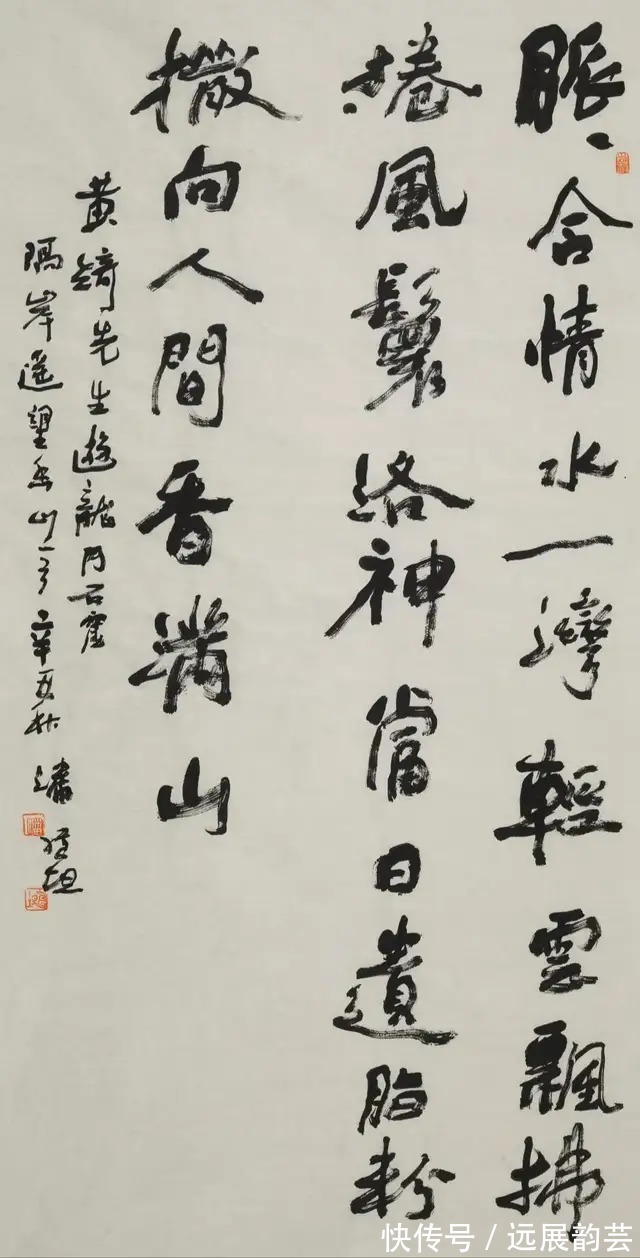 脈、含情水一灣輕雲飄拂
捲風鬟洛神當日遺脂粉
撒向人間香滿山
黃綺先生遊龍門石窟
隔岸遙望香山一 辛丑秋
快传号/远展韵芸